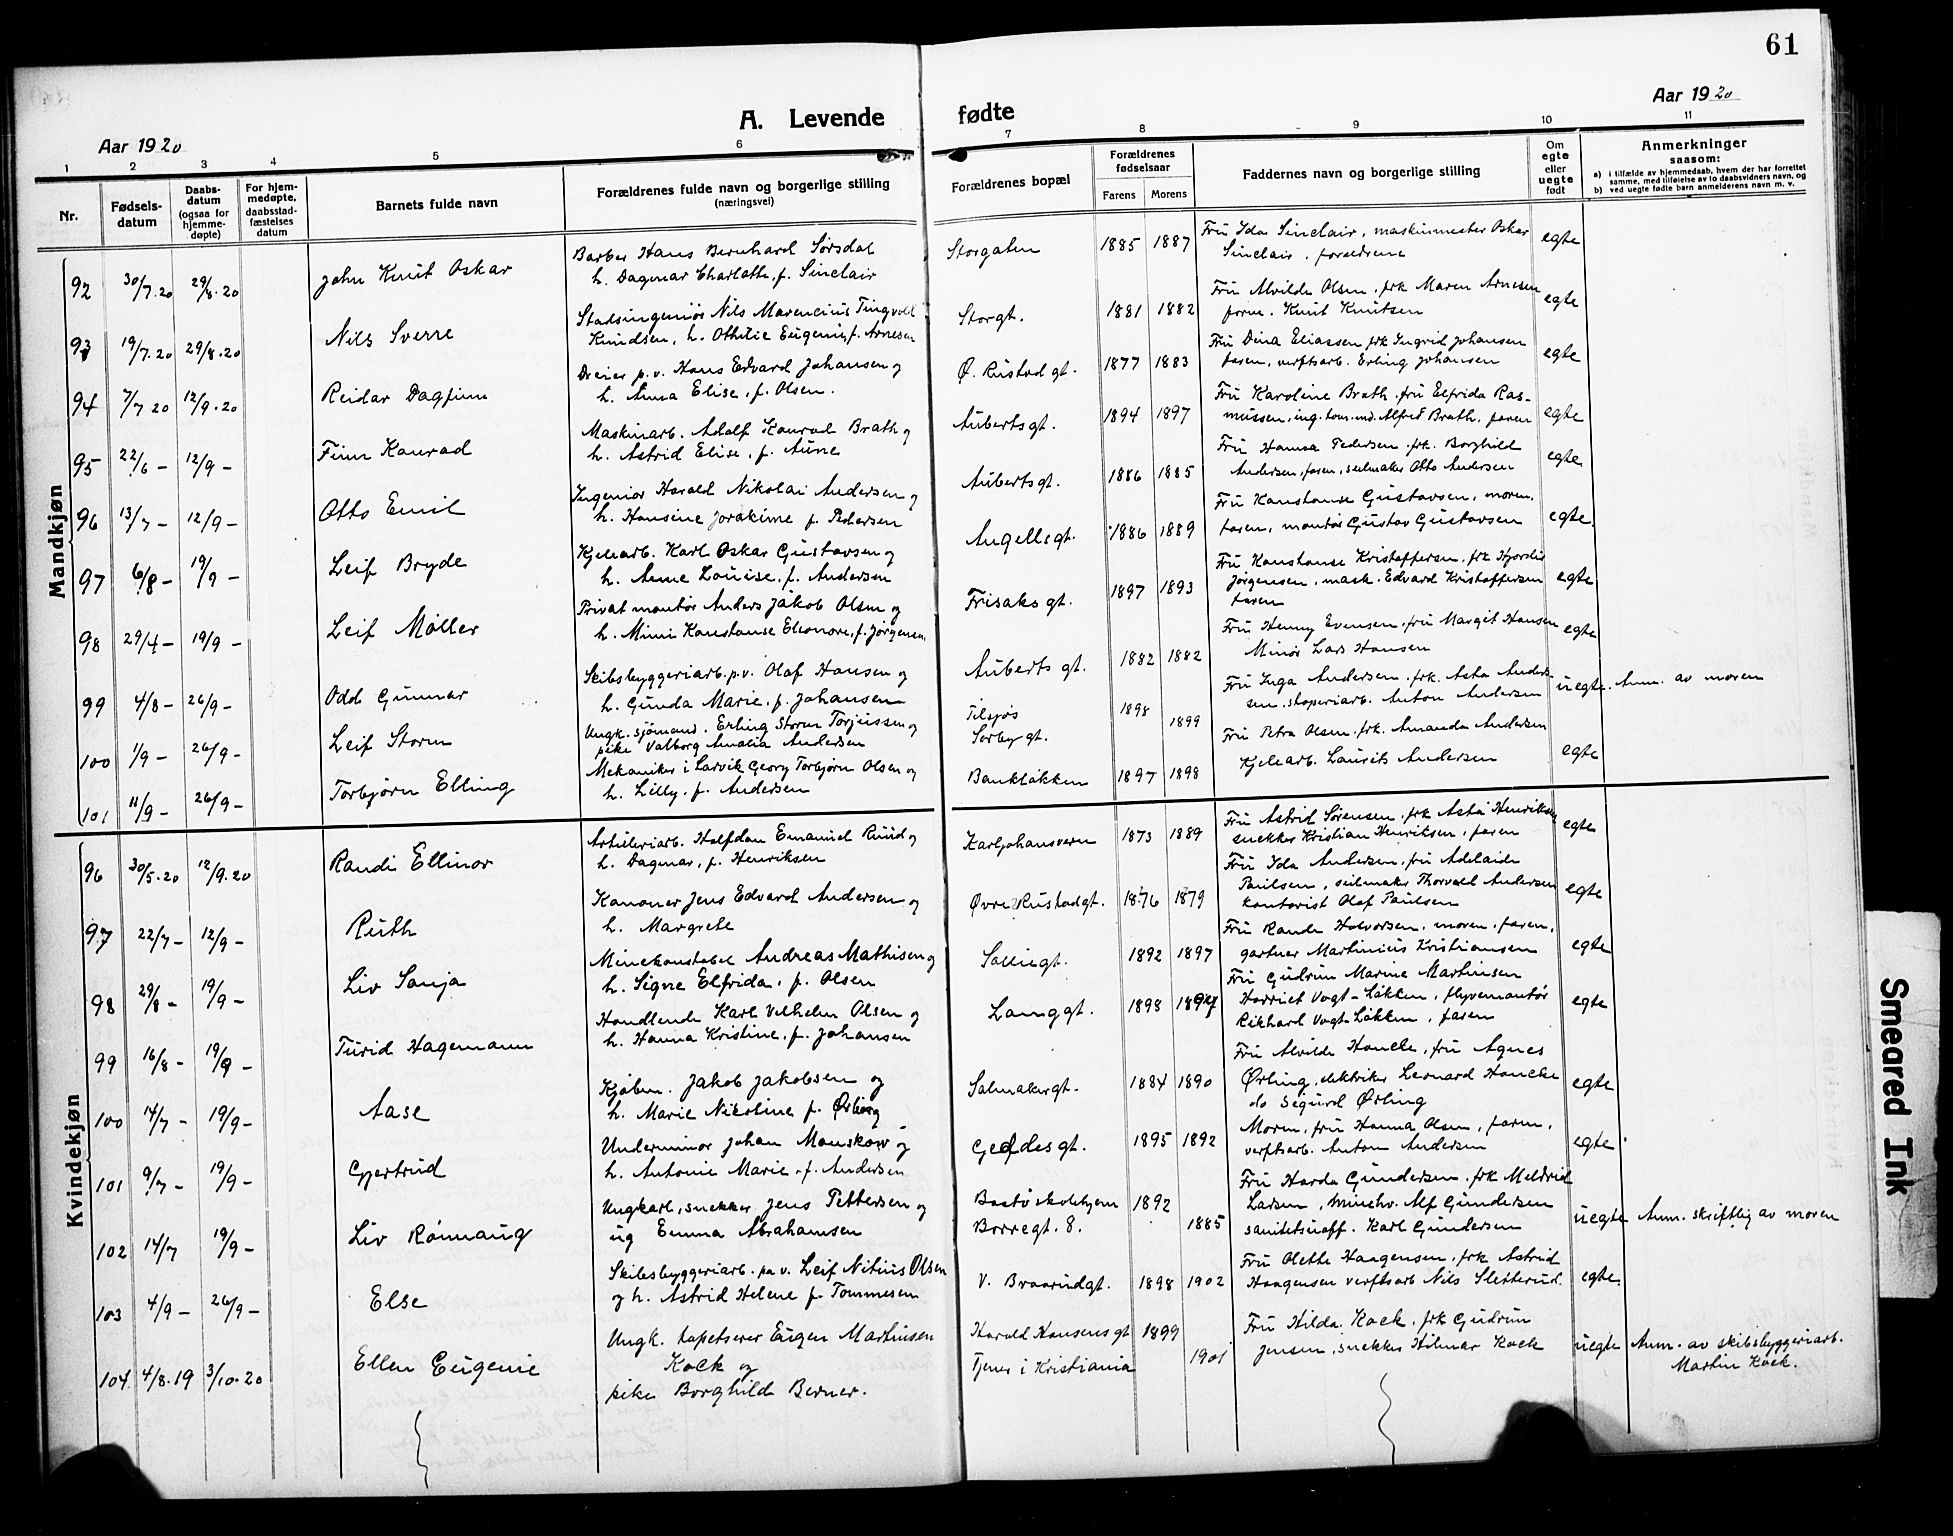 61
A. Levende
fødte
Aar 1920
Aar 1920
1 2 3 4 5 6
7 8 9 10 11
Nr.
Fødsels-
datum
Daabs-
datum
(ogsaa for
hjemme-
døpte)
For hjem-
medøpte,
daabsstad-
fæstelses
datum
Barnets fulde navn
Forældrenes fulde navn og borgerlige stilling
(næringsvei)
Forældrenes bopæl
Forældrenes
fødselsaar
Farens Morens
Faddernes navn og borgerlige stilling
Om
egte
eller
uegte
født
Anmerkninger
saasom:
a) i tilfælde av hjemmedaab, hvem der har forrettet
samme, med tilføielse av to daabsvidners navn, og
b) ved uegte fødte barn anmelderens navn m. v.
Mandkjøn
92 30/7.20 29/8.20 John Knut Oskar
Barber Hans Bernhard Sørsdal
h. Dagmar Charlotte, f. Sinclair
Storgaten 1885 1887
Fru Ida Sinclair, maskinmester Oskar
Sinclair, forældrene
egte
93 19/7.20 29/8.20 Nils Sverre
Stadsingeniør Nils Marencius Tingvold
Knudsen, h. Othilie Eugenie, f. Arnesen
Storgt. 1881 1882
Fru Alvilde Olsen, frk Maren Arnesen
faren. Knut Knutsen
egte
94 7/7 20 12/9.20 Reidar Dagfinn
Dreier p.v. Hans Edvard Johansen og
h. Anna Elise, f. Olsen.
Ø. Rustad gt. 1877 1883
Fru Dina Eliassen frk Ingrid Johansen
faren, verftsarb. Erling Johansen
egte
95 22/6 - 12/9 - Finn Konrad
Maskinarb. Adolf Konrad Brath og
h. Astrid Elise, f. Aune
Aubertsgt. 1894 1897
Fru Karoline Brath, fru Elfrida Ras-
mussen, ing. Alfred Brath, faren
egte
96 13/7 - 12/9 - Otto Emil
Ingeniør Harald Nikolai Andersen og
h. Hansine Jorakime f. Pedersen
Aubertsgt. 1886 1885
Fru Hanna Pedersen, frk. Borghild
Andersen, faren, seilmaker Otto Andersen
egte
97 6/8 - 19/9 - Leif Bryde
Kjelearb. Karl Oskar Gustavsen og
h. Anne Louise, f. Andersen
Angellsgt. 1886 1889
Fru Konstanse Gustavsen, moren,
faren, montør Gustav Gustavsen
egte
98 29/4 - 19/9 - Leif Møller
Privat montør Anders Jakob Olsen og
h. Mimi Konstanse Eleonore, f. Jørgensen
Frisaks gt. 1897 1893
Fru Konstanse Kristoffersen, frk Hjørdis
Jørgensen, mask. Edvard Kristoffersen
faren
egte
99 4/8 - 26/9 - Odd Gunnar
Skibsbyggeriarb. p.v. Olaf Hansen og
h. Gunda Marie, f. Johansen
Auberts gt. 1882 1882
Fru Henny Evensen, fru Margit Hansen
Minør Lars Hansen
egte
100 1/9 - 26/9 - Leif Storm
Ungk. sjømand. Erling Storm Torjussen og
pike Valborg Amalia Andersen
Tilsjøs 1898
Sørbygt. 1899
Fru Inga Andersen, frk. Asta Ander-
sen, støperiarb. Anton Andersen
uegte. Anm. av moren
101 11/9 - 26/9 - Torbjørn Elling
Mekaniker i Larvik Georg Torbjørn Olsen og
h. Lilly, f. Andersen
Bankløkken 1897 1898
Fru Petra Olsen, frk. Amanda Andersen
Kjelearb. Laurits Andersen
egte
Kvindekjøn
96 30/5.20 12/9.20 Randi Ellinor
Artilleriarb. Halfdan Emanuel Ruud og
h. Dagmar, f. Henriksen
Karljohansvern 1873 1889
Fru Astrid Sørensen, frk Asta Henriksen
snekker Kristian Henriksen, faren
egte
97 22/7 - 12/9 - Ruth
Kanoner Jens Edvard Andersen og
h. Margrete
Øvre Rustadgt. 1876 1879
Fru Ida Andersen, fru Adelaide
Paulsen, seilmaker Thorvald Andersen
kontorist Olaf Paulsen
egte
98 29/8 - 19/9 - Liv Sonja
Minekonstabel Andreas Mathisen og
h. Signe Elfrida, f. Olsen
Solliegt. 1892 1897
Fru Rande Halvorsen, moren, faren,
gartner Martinius Kristiansen
egte
99 16/8 - 19/9 - Turid Hagemann
Handlende Karl Vilhelm Olsen og
h. Hanna Kristine, f. Johansen
Langgt. 1893 1897
Fru Gudrun Marine Martinsen
Harriet Vogt-Løkken, flyvemontør
Rikhard Vogt-Løkken, faren
egte
100 14/7 - 19/9 - Aase
Kjøbm. Jakob Jakobsen og
h. Marie Nikoline f. Ørling
Salmakergt. 1884 1890
Fru Alvilde Hancke, fru Agnes
Ørling, elektriker Leonard Hancke
do Sigurd Ørling
egte
101 9/7 - 19/9 - Gjertrud
Underminør Johan Monskow og
h. Antonie Marie, f. Andersen
Geddesgt. 1895 1892
Moren, fru Hanna Olsen, faren,
verftsarb. Anton Andersen
egte
102 14/7 19/9 - Liv Rønnaug
Ungkarl, snekker Jens Pettersen og
ug Emma Abrahamsen
Bastø skolehjem 1892
Borregt. 8. 1885
Fru Harda Gundersen, frk Meldrid
Larsen, minehv. Alf Gundersen
sanitetsuoff. Karl Gundersen
uegte Anm. skriftlig av moren
103 4/9 - 26/9 - Else
Skibsbyggeriarb. pa v. Leif Nitius Olsen
og h. Astrid Helene f. Tommesen
V. Braarudgt. 1898 1902
Fru Olette Haagensen, frk Astrid
Haagensen verftsarb Nils Sletterud.
egte.
104. 4/8.19 3/10.20 Ellen Eugenie
Ungk. tapetserer Eugen Martinsen
Kock og
pike Borghild Berner.
Harald Hansens gt 1899
Tjener i Kristiania 1901
Fru Hilda Kock, frk Gudrun
Jensen, snekker Hilmar Kock
uegte Anm. av skibsbyggeriarb.
Martin Kock.
Smeared Ink